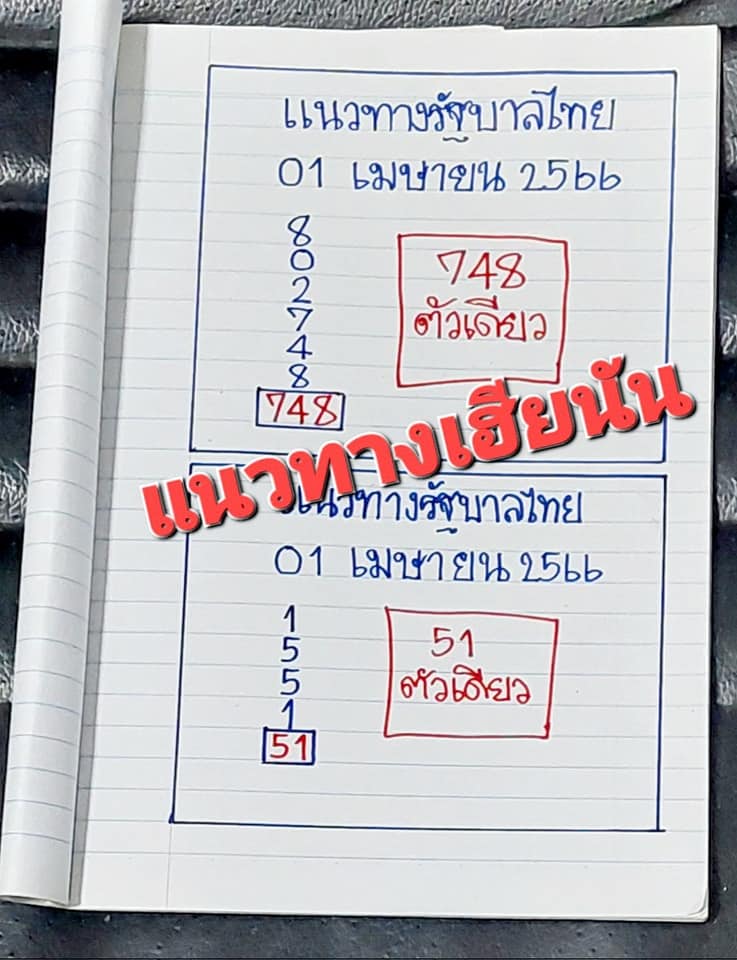 แนวทางรัฐบาลไทย
01 เมษายน 2566
8
0
2
7
4
8
748
748
ตัวเดียว
แนวทางเฮียนัน
แนวทางรัฐบาลไทย
01 เมษายน 2566
1
5
5
1
51
51
ตัวเดียว